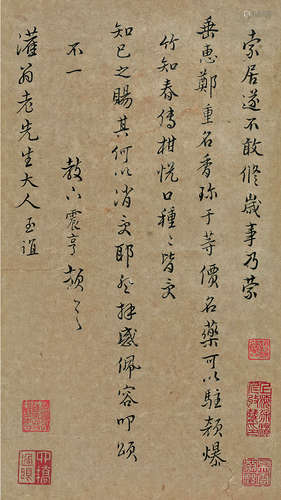 索居遂不敢修歲事乃蒙
垂惠鄭重名香珎于等價名藥可以駐顏爆
竹知春傳柑悅口種々皆交
知己之賜其何以消受耶登拜感佩容叩頌
不一
教小震亨頓々
灌翁老先生大人至誼